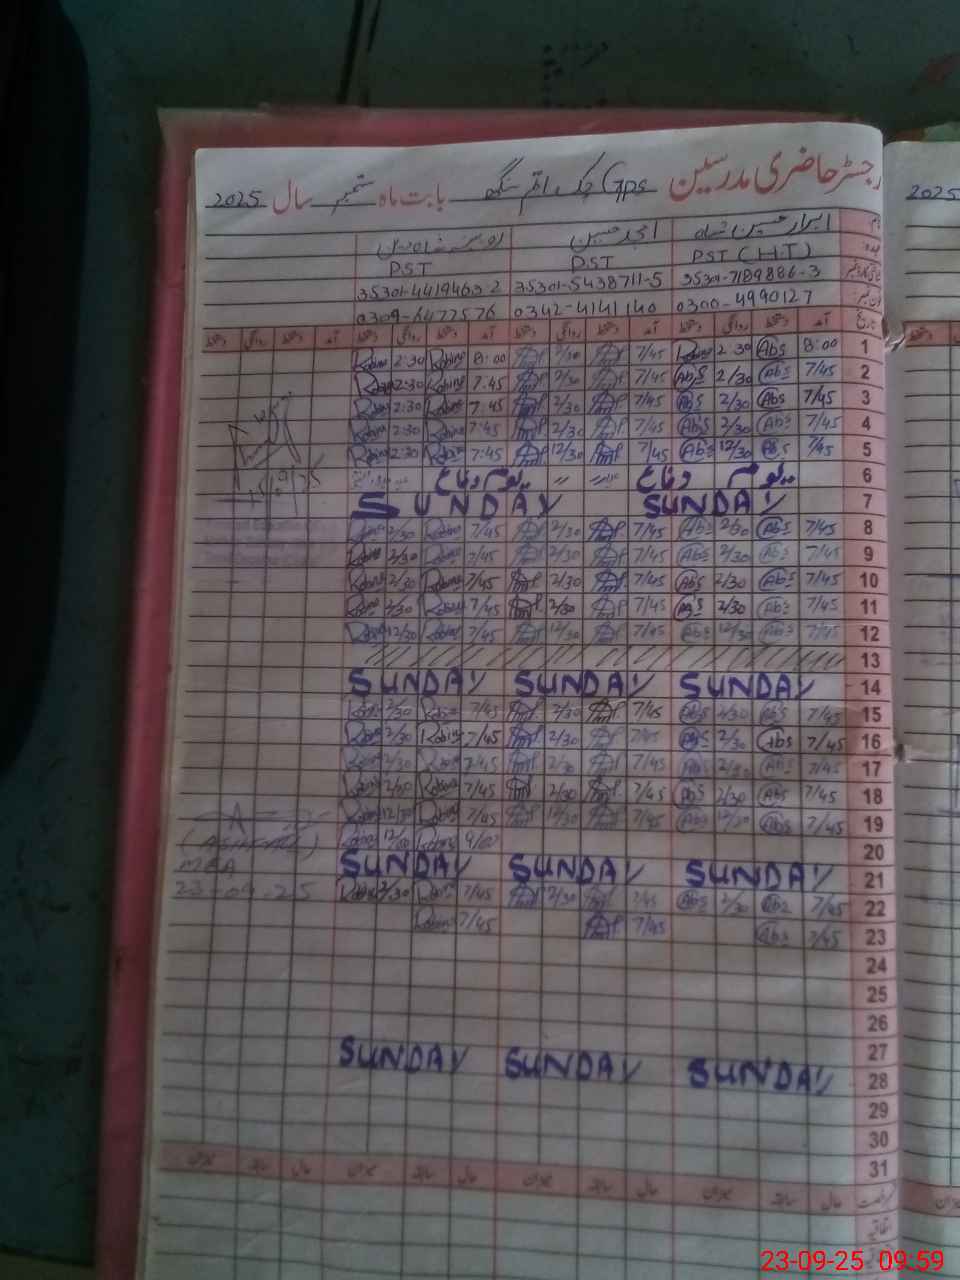 رجسٹر حاضری مدرسین GPS چک رام سنگھ بابت ماہ ستمبر سال 2025
2025
نام ابرار حسین شاہ امجد حسین
عہدہ PST (H.T) PST PST
35301-7189886-3 35301-5438711-5 35301-4419463-2
0300-4990127 0342-4141140 0309-6477576
تاریخ آمد دستخط روانگی دستخط آمد دستخط روانگی دستخط آمد دستخط روانگی دستخط آمد دستخط روانگی دستخط
1 8:00 Abs 2:30 7/45 2/30 8:00 Robina 2:30
2 7/45 Abs 2/30 Abs 7/45 2/30 7:45 Robina 2:30
3 7/45 Abs 2/30 Abs 7/45 2/30 7:45 Robina 2:30
4 7/45 Abs 2/30 Abs 7/45 2/30 7:45 Robina 2:30
5 7/45 Abs 12/30 Abs 7/45 12/30 7:45 Robina 2:30
6 یوم دفاع یوم دفاع
7 SUNDAY SUNDAY
8 7/45 Abs 2/30 Abs 7/45 2/30 7/45 Robina 2/30
9 7/45 Abs 2/30 Abs 7/45 2/30 7/45 Robina 2/30
10 7/45 Abs 2/30 Abs 7/45 2/30 7/45 Robina 2/30
11 7/45 Abs 2/30 Abs 7/45 2/30 7/45 Robina 2/30
12 7/45 Abs 12/30 Abs 7/45 12/30 7/45 Robina 12/30
13
14 SUNDAY SUNDAY SUNDAY
15 7/45 Abs 2/30 Abs 7/45 2/30 7/45 Robina 2/30
16 7/45 Abs 2/30 Abs 7/45 2/30 7/45 Robina 2/30
17 7/45 Abs 2/30 Abs 7/45 2/30 7/45 Robina 2/30
18 7/45 Abs 2/30 Abs 7/45 2/30 7/45 Robina
19 7/45 Abs 12/30 Abs 7/45 12/30 7/45 Robina 12/30
20 9/00 Robina 12/00
21 SUNDAY SUNDAY SUNDAY
22 7/45 Abs 2/30 Abs 7/45 2/30 7/45 Robina 2/30
23 7/45 Abs 7/45 7/45 Robina
24
25
26
27
28 SUNDAY SUNDAY SUNDAY
29
30
31
MEA
23-09-25
حال سابقہ میزان حال سابقہ میزان حال سابقہ میزان
اتفاقیہ
23-09-25 09:59